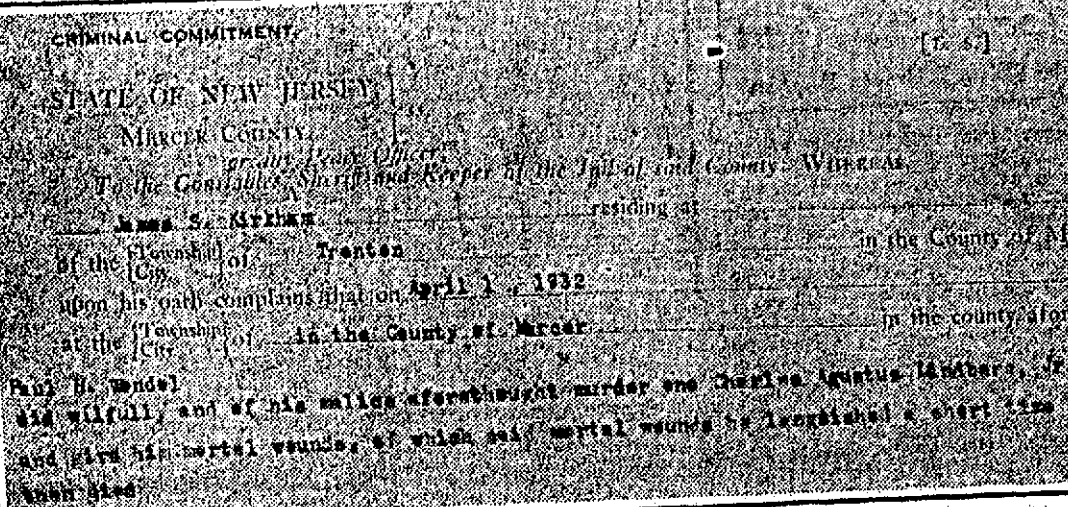 CRIMINAL COMMITMENT. [L. S.]
STATE OF NEW JERSEY,
MERCER COUNTY.
or any Peace Officer,
To the Constables, Sheriff and Keeper of the Jail of said County: WHEREAS,
James S. Kirkham residing at
of the [Township City] of Trenton in the County of M
upon his oath complains that on April 1, 1932
at the [Township City] of in the County of Mercer in the county afor
Paul H. Wendel
did wilfull, and of his malice aforethought murder one Charles Agustus Lindberg, Jr
and give him mortal wounds, of which said mortal wounds he languished a short time
then died